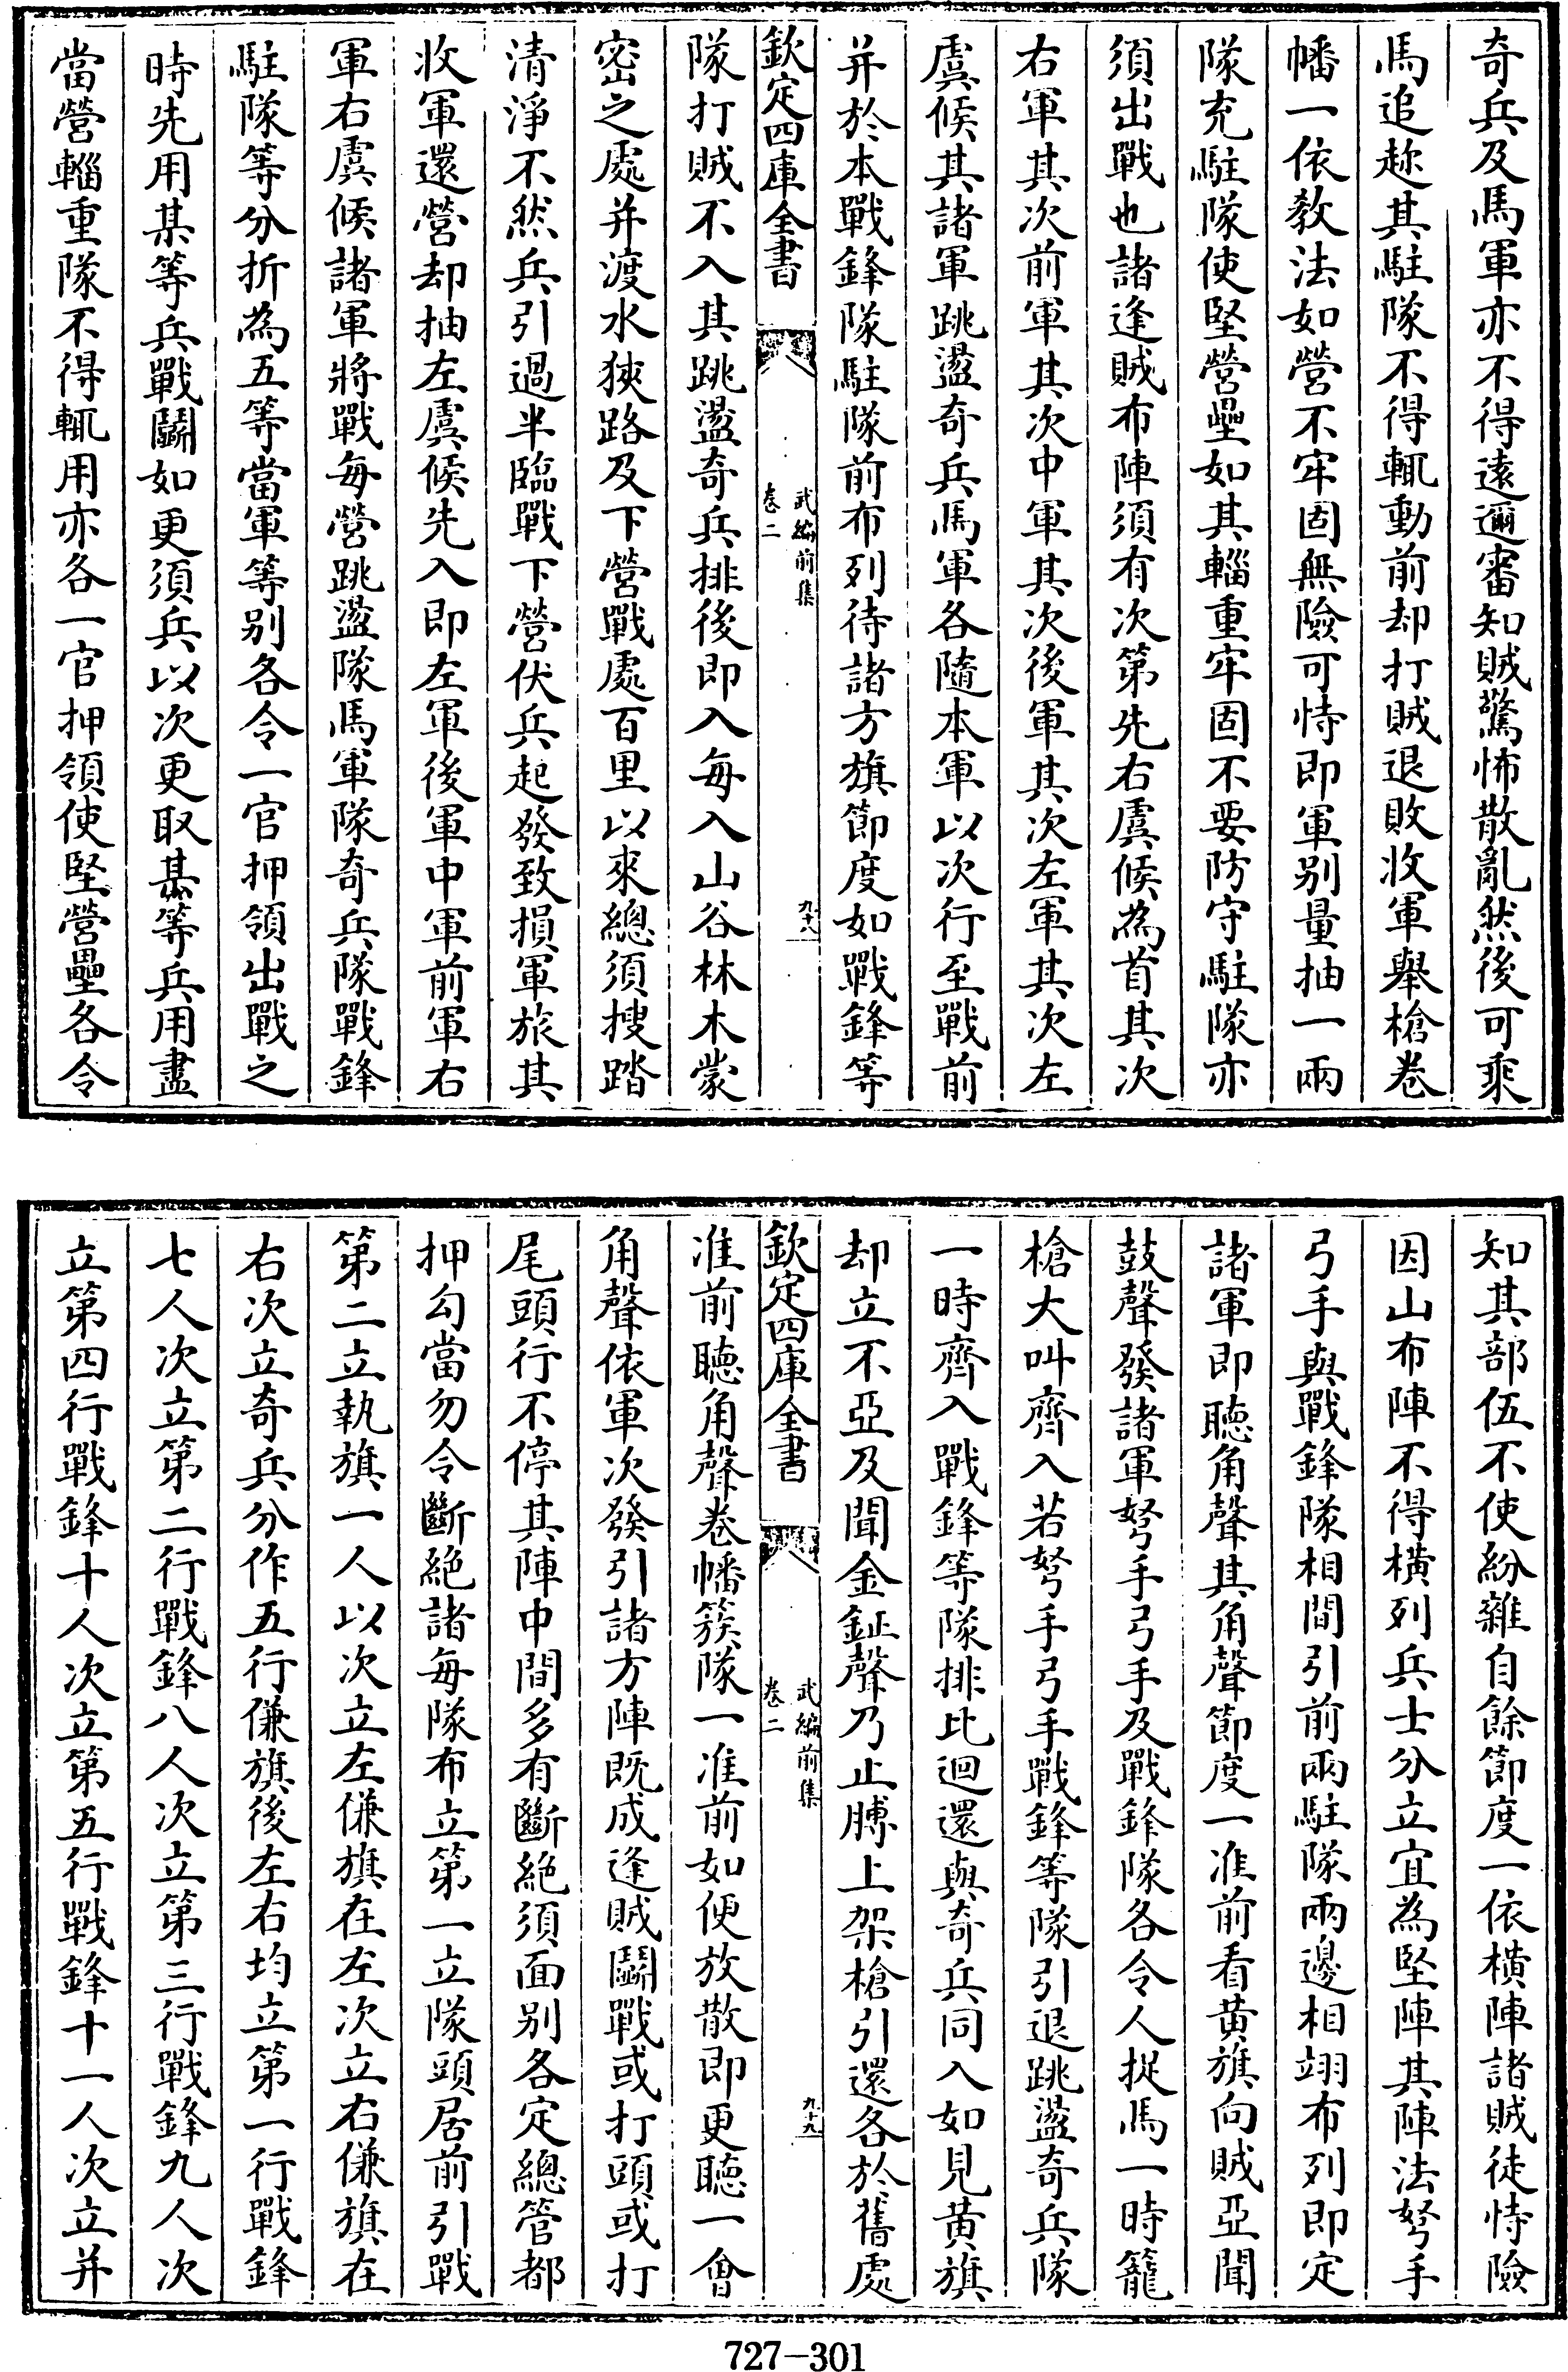 奇兵及馬軍亦不得遠逥審知賊驚怖散亂然後可乘
馬追趂其駐隊不得輒動前却打賊退敗收軍舉槍卷
幡一依敎法如營不牢固無險可恃即軍别量抽一兩
隊充駐隊使堅營壘如其輜重牢固不要防守駐隊亦
須出戰也諸逢賊布陣須有次第先右虞候為首其次
右軍其次前軍其次中軍其次後軍其次左軍其次左
虞候其諸軍跳盪奇兵馬軍各隨本軍以次行至戰前
并於本戰鋒隊駐隊前布列待諸方旗節度如戰鋒等
欽定四庫全書
武編前集
卷二
九十八
隊打賊不入其跳盪奇兵排後即入每入山谷林木蒙
密之處并渡水狹路及下營戰處百里以來總須搜踏
清淨不然兵引過半臨戰下營伏兵起發致損軍旅其
收軍還營却抽左虞候先入即左軍後軍中軍前軍右
軍右虞候諸軍將戰每營跳盪隊馬軍隊奇兵隊戰鋒
駐隊等分折為五等當軍等别各令一官押領出戰之
時先用某等兵戰鬭如更須兵以次更取某等兵用盡
當營輜重隊不得輒用亦各一官押領使堅營壘各令
知其部伍不使紛雜自餘節度一依横陣諸賊徒恃險
因山布陣不得横列兵士分立宜為堅陣其陣法弩手
弓手與戰鋒隊相間引前兩駐隊兩邊相翊布列即定
諸軍即聽角聲其角聲節度一准前看黄旗向賊亞聞
鼓聲發諸軍弩手弓手及戰鋒隊各令人捉馬一時籠
槍大叫齊入若弩手弓手戰鋒等隊引退跳盪奇兵隊
一時齊入戰鋒等隊排比迴還與奇兵同入如見黄旗
却立不亞及聞金鉦聲乃止膊上架槍引還各於舊處
欽定四庫全書
武編前集
卷二
九十九
准前聽角聲卷幡簇隊一准前如便放散即更聽一會
角聲依軍次發引諸方陣既成逢賊鬭戰或打頭或打
尾頭行不停其陣中間多有斷絶須面别各定總管都
押勾當勿令斷絶諸每隊布立第一立隊頭居前引戰
第二立執旗一人以次立左傔旗在左次立右傔旗在
右次立奇兵分作五行傔旗後左右均立第一行戰鋒
七人次立第二行戰鋒八人次立第三行戰鋒九人次
立第四行戰鋒十人次立第五行戰鋒十一人次立并
727-301